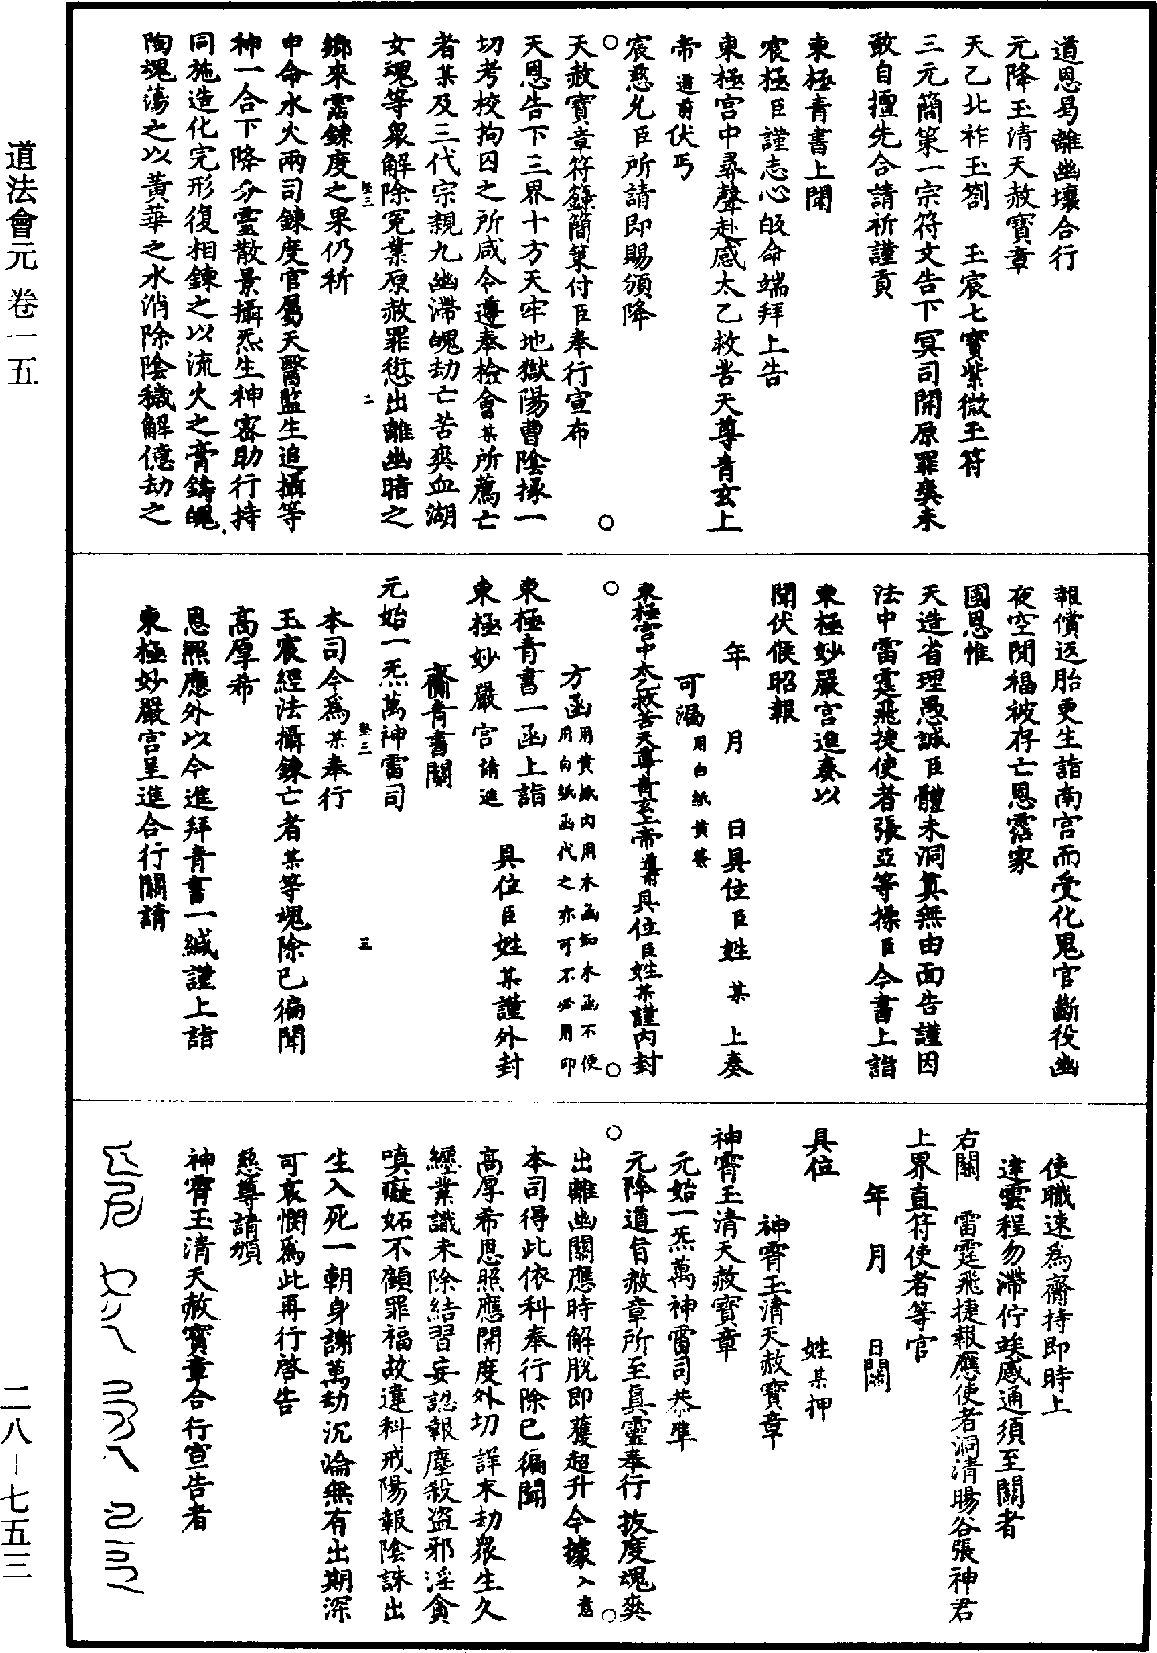 道法會元 卷一五
道恩曷離幽壤合行
元降玉清天赦寶章
天乙北祚玉劄　玉宸七寶紫微玉符
三元簡策一宗符文告下冥司開原罪爽未
敢自擅先合請祈謹貢
東極青書上聞
宸極臣謹志心皈命端拜上告
東極宮中尋聲赴感太乙救苦天尊青玄上
帝道前伏丐
宸慈允臣所請即賜頒降
天赦寶章符籙簡策付臣奉行宣布
天恩告下三界十方天牢地獄陽曹陰掾一
切考校拘囚之所咸令遵奉檢會某所薦亡
者某及三代宗親九幽滯魄劫亡苦爽血湖
女魂等衆解除冤業原赦罪愆出離幽暗之
鄉來霑鍊度之果仍祈
申命水火兩司鍊度官屬天醫監生追攝等
神一合下降分靈散景攝炁生神密助行持
同施造化完形復相鍊之以流火之膏鑄魄
陶魂蕩之以黃華之水消除陰穢解億劫之
報償返胎更生詣南宮而受化鬼官斷役幽
夜空閒福被存亡恩霑家
國恩惟
天造省理愚誠臣體未洞真無由面告謹因
法中雷霆飛捷使者張亞等操臣今書上詣
東極妙嚴宮進奏以
聞伏候昭報
年　月　日具位臣姓某上奏
可漏用白紙黃簽
東極宮中太乙救苦天尊青玄上帝道前具位臣姓某謹內封
方函用黃紙內用木函如木函不便
用白紙函代之亦可不必用印
東極青書一函上詣
東極妙嚴宮請進　具位臣姓某謹外封
齋青書關
元始一炁萬神雷司
本司今為某奉行
玉宸經法攝鍊亡者某等魂除已徧聞
高厚希
恩照應外以今進拜青書一緘謹上詣
東極妙嚴宮呈進合行關請
使職速為齎持即時上
達雲程勿滯佇竢感通須至關者
右關　雷霆飛捷報應使者洞清暘谷張神君
上界直符使者等官
年　月　日關
具位　姓某押
神霄玉清天赦寶章
神霄玉清天赦寶章
元始一炁萬神雷司恭準
元降道旨赦章所至真靈奉行拔度魂爽
出離幽關應時解脫即獲超升今據入意
本司得此依科奉行除已徧聞
高厚希恩照應開度外切詳末劫眾生久
經業識未除結習妄認報塵殺盜邪淫貪
嗔癡妬不顧罪福故違科戒陽報陰誅出
生入死一朝身謝萬劫沉淪無有出期深
可哀憫為此再行啓告
慈尊請頒
神霄玉清天赦寶章合行宣告者
二八—七五三